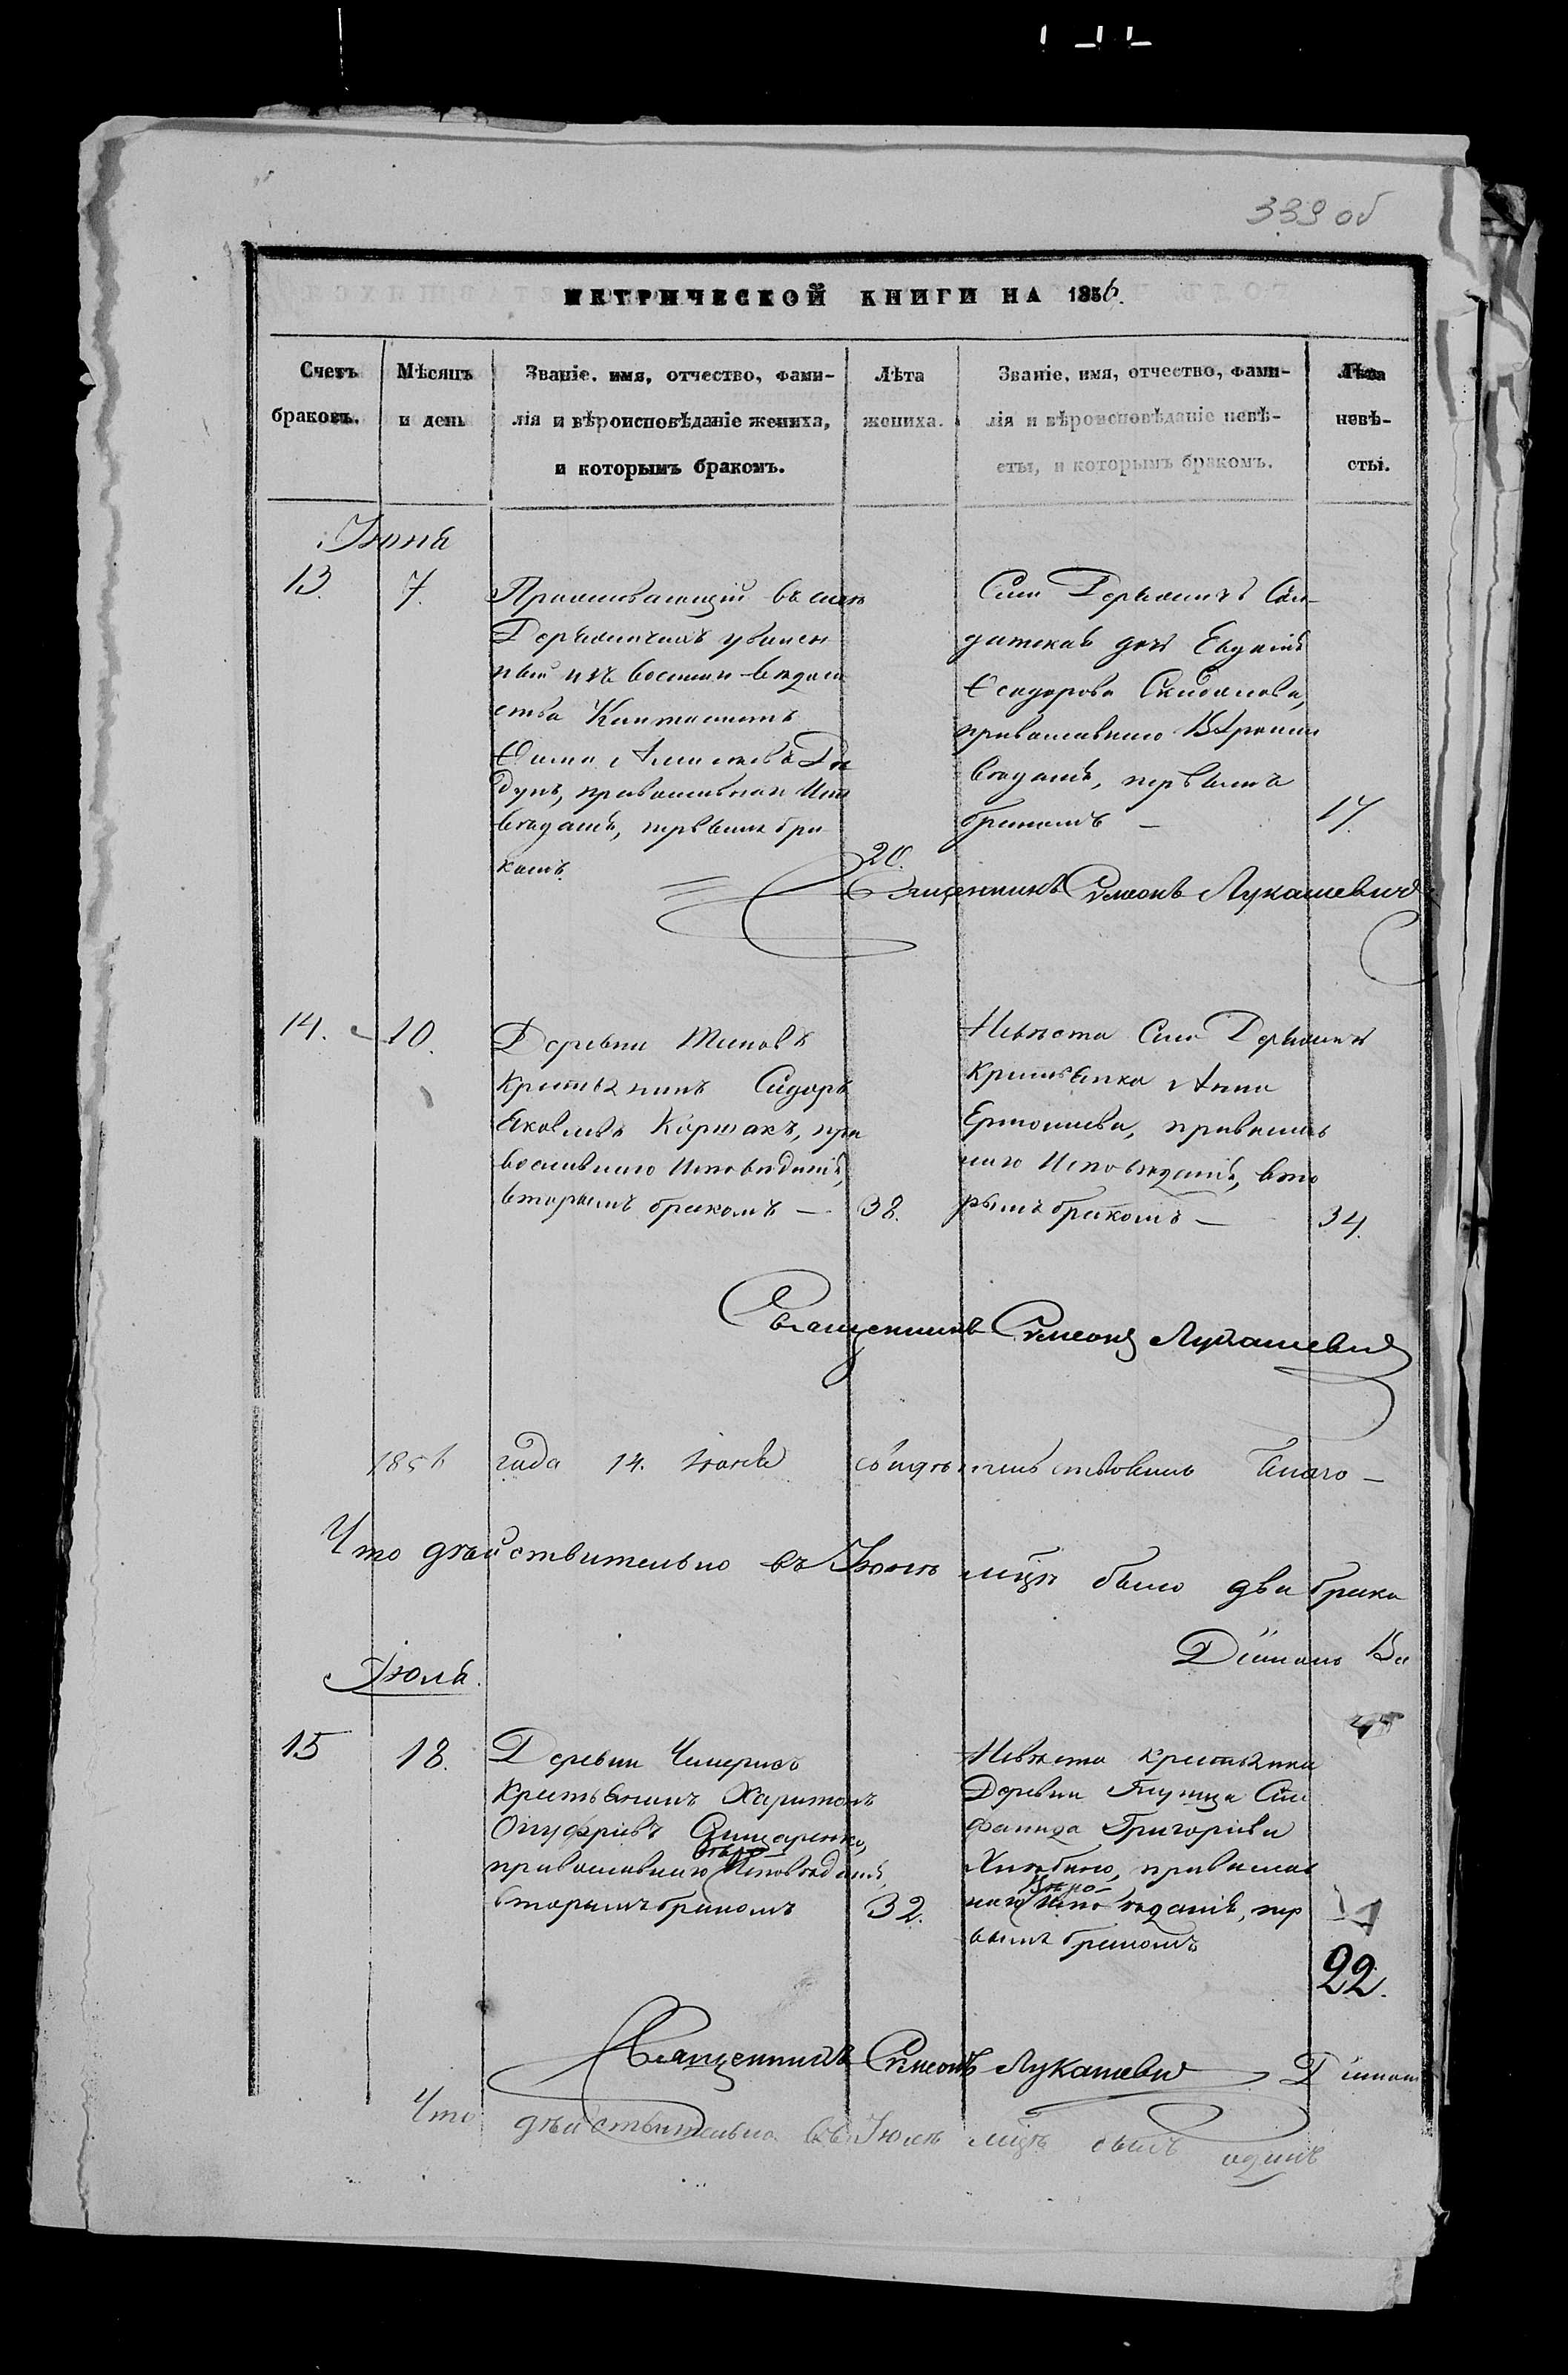 339 об
МЕТРИЧЕСКОЙ КНИГИ НА 1856.
Счетъ браковъ.
Мѣсяцъ и день
Званіе, имя, отчество, фами-
лія и вѣроисповѣданіе жениха,
и которымъ бракомъ.
Лѣта жениха.
Званіе, имя, отчество, фами-
лія и вѣроисповѣданіе невѣ-
сты, и которымъ бракомъ.
Лѣта невѣ-
сты.
Іюня
13.
7.
Проживающій въ селѣ
уволен
ный изъ военнаго вѣдом
ства Кантонистъ
православнаго Испо
вѣданія, первымъ бра
комъ.
20.
Села Сол-
датская дочь Евдокія
Ѳедорова
православнаго Вѣроиспо
вѣданія, первымъ
бракомъ —
17.
Священникъ Симеонъ Лукашевичъ
14.
10.
Деревни
крестьянинъ Сидоръ
Яковлевъ Коржакъ, пра
вославнаго Исповѣданія,
вторымъ бракомъ —
38.
Невѣста Села
крестьянка Анна
Ермолаева, православ
наго Исповѣданія, вто
рымъ бракомъ —
34.
Священникъ Симеонъ Лукашевичъ
1856 года 14. Іюня свидѣтельствовалъ Благо —
Что дѣйствительно въ Іюнѣ мцѣ было два брака
Іюля.
15
18.
Деревни Чемерисъ
Крестьянинъ Харитонъ
Онуфріевъ
православнаго Вѣро Исповѣданія,
вторымъ бракомъ
32.
Невѣста крестьянка
Деревни
Григоріева
православ
наго Вѣро Исповѣданія, пер
вымъ бракомъ
22.
Священникъ Симеонъ Лукашевичъ
Что дѣйствительно въ Іюлѣ мцѣ былъ одинъ